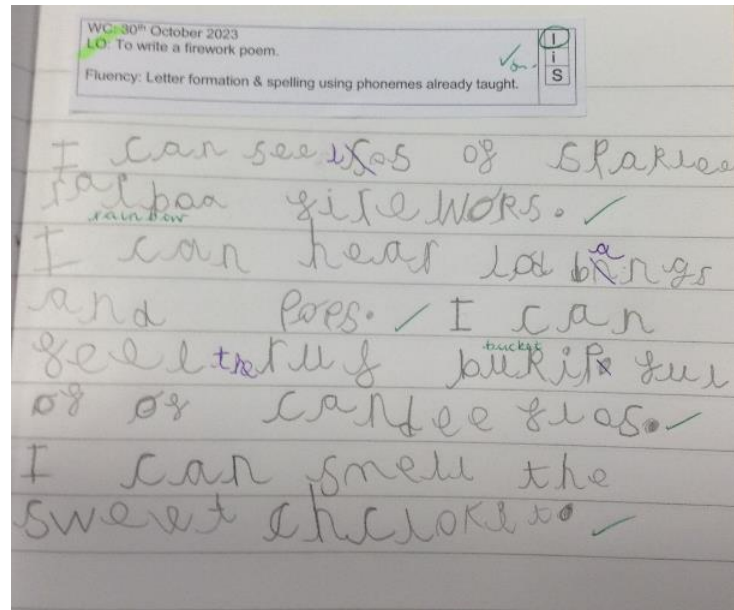 WC: 30th October 2023
LO: To write a firework poem.
Fluency: Letter formation & spelling using phonemes already taught.
I
i
S
I can see of sparlee
fireWORS.
rainbow
I can hear lod bangs
and pops. I can
feel the ruf bukit ful
bucket
of of candee flos.
I can smell the
sweet